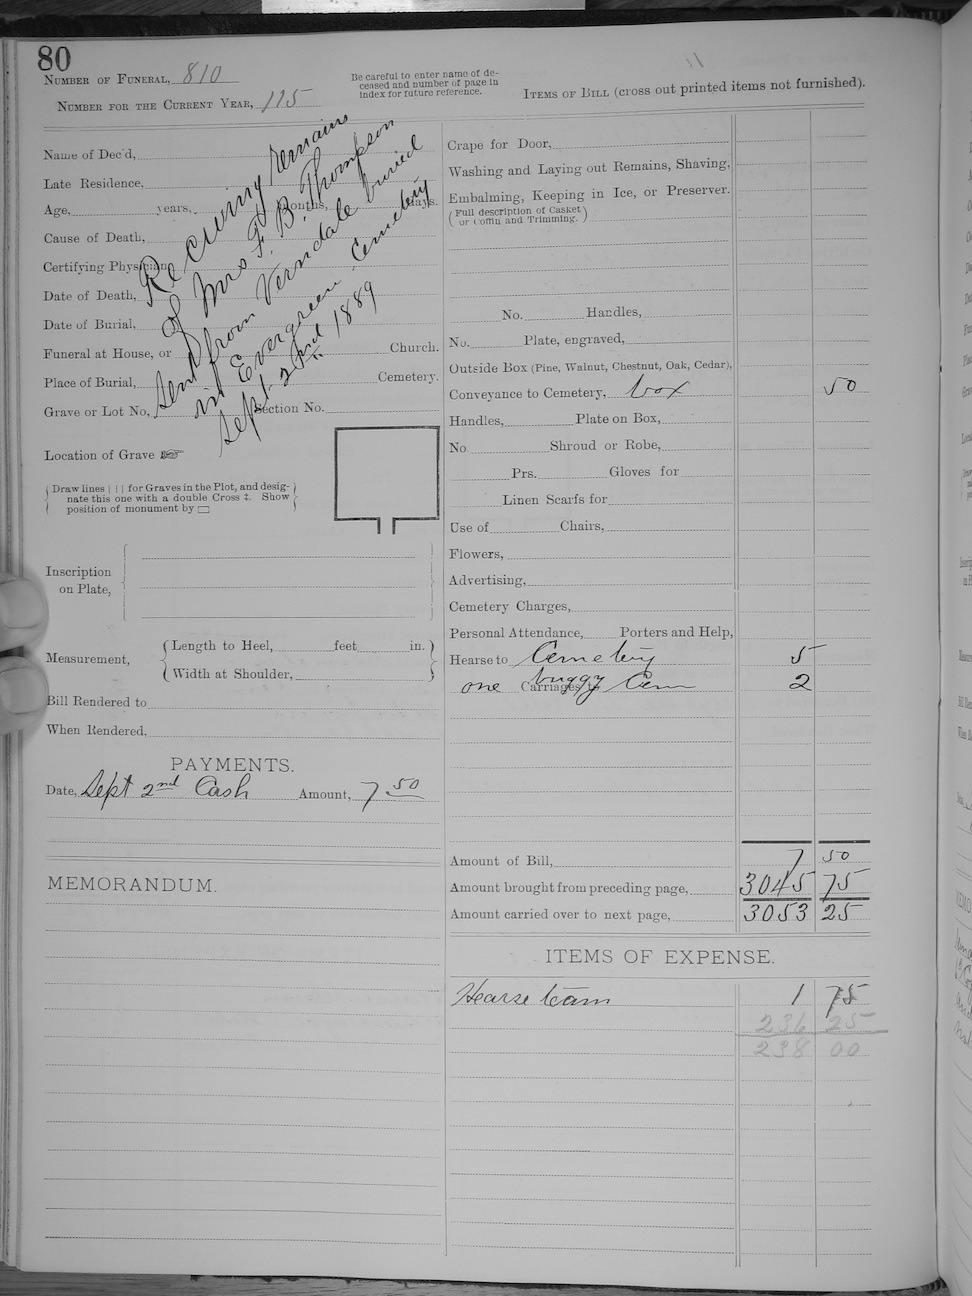 80
Number of Funeral, 810
Number for the Current Year, 115
Be careful to enter name of de-
ceased and number of page in
index for future reference.
Items of Bill (cross out printed items not furnished).
Name of Dec'd,
Late Residence,
Age, years, months, days.
Cause of Death,
Certifying Physician,
Date of Death,
Date of Burial,
Funeral at House, or Church.
Place of Burial, Cemetery.
Grave or Lot No, Section No.
Recieving remains
of Mrs F. B. Thompson
Sent from Verndale buried
in Evergreen Cemetery
Sept 2nd 1889
Location of Grave
Draw lines | | | for Graves in the Plot, and desig-
nate this one with a double Cross ‡. Show
position of monument by ▭
Inscription
on Plate,
Measurement,
Length to Heel, feet in.
Width at Shoulder,
Bill Rendered to
When Rendered,
PAYMENTS.
Date, Sept 2nd Cash Amount, 7 50
MEMORANDUM.
Crape for Door,
Washing and Laying out Remains, Shaving,
Embalming, Keeping in Ice, or Preserver.
(Full description of Casket
or Coffin and Trimming.)
No. Handles,
No. Plate, engraved,
Outside Box (Pine, Walnut, Chestnut, Oak, Cedar),
Conveyance to Cemetery, box 50
Handles, Plate on Box,
No. Shroud or Robe,
Prs. Gloves for
Linen Scarfs for
Use of Chairs,
Flowers,
Advertising,
Cemetery Charges,
Personal Attendance, Porters and Help,
Hearse to Cemetery 5
one Carriages to buggy Cem 2
Amount of Bill, 7 50
Amount brought from preceding page, 3045 75
Amount carried over to next page, 3053 25
ITEMS OF EXPENSE.
Hearse team 1 75
236 25
238 00